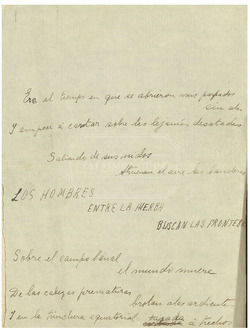 Era el tiempo en que se abrieron mis párpados
sin alas
Y empecé a cantar sobre las lejanías desatadas
Saliendo de sus nidos
Atruenan el aire las banderas
LOS HOMBRES
ENTRE LA HIERBA
BUSCAN LAS FRONTERAS
Sobre el campo banal
el mundo muere
De las cabezas prematuras
brotan alas ardientes
Y en la trinchera ecuatorial
á trechos